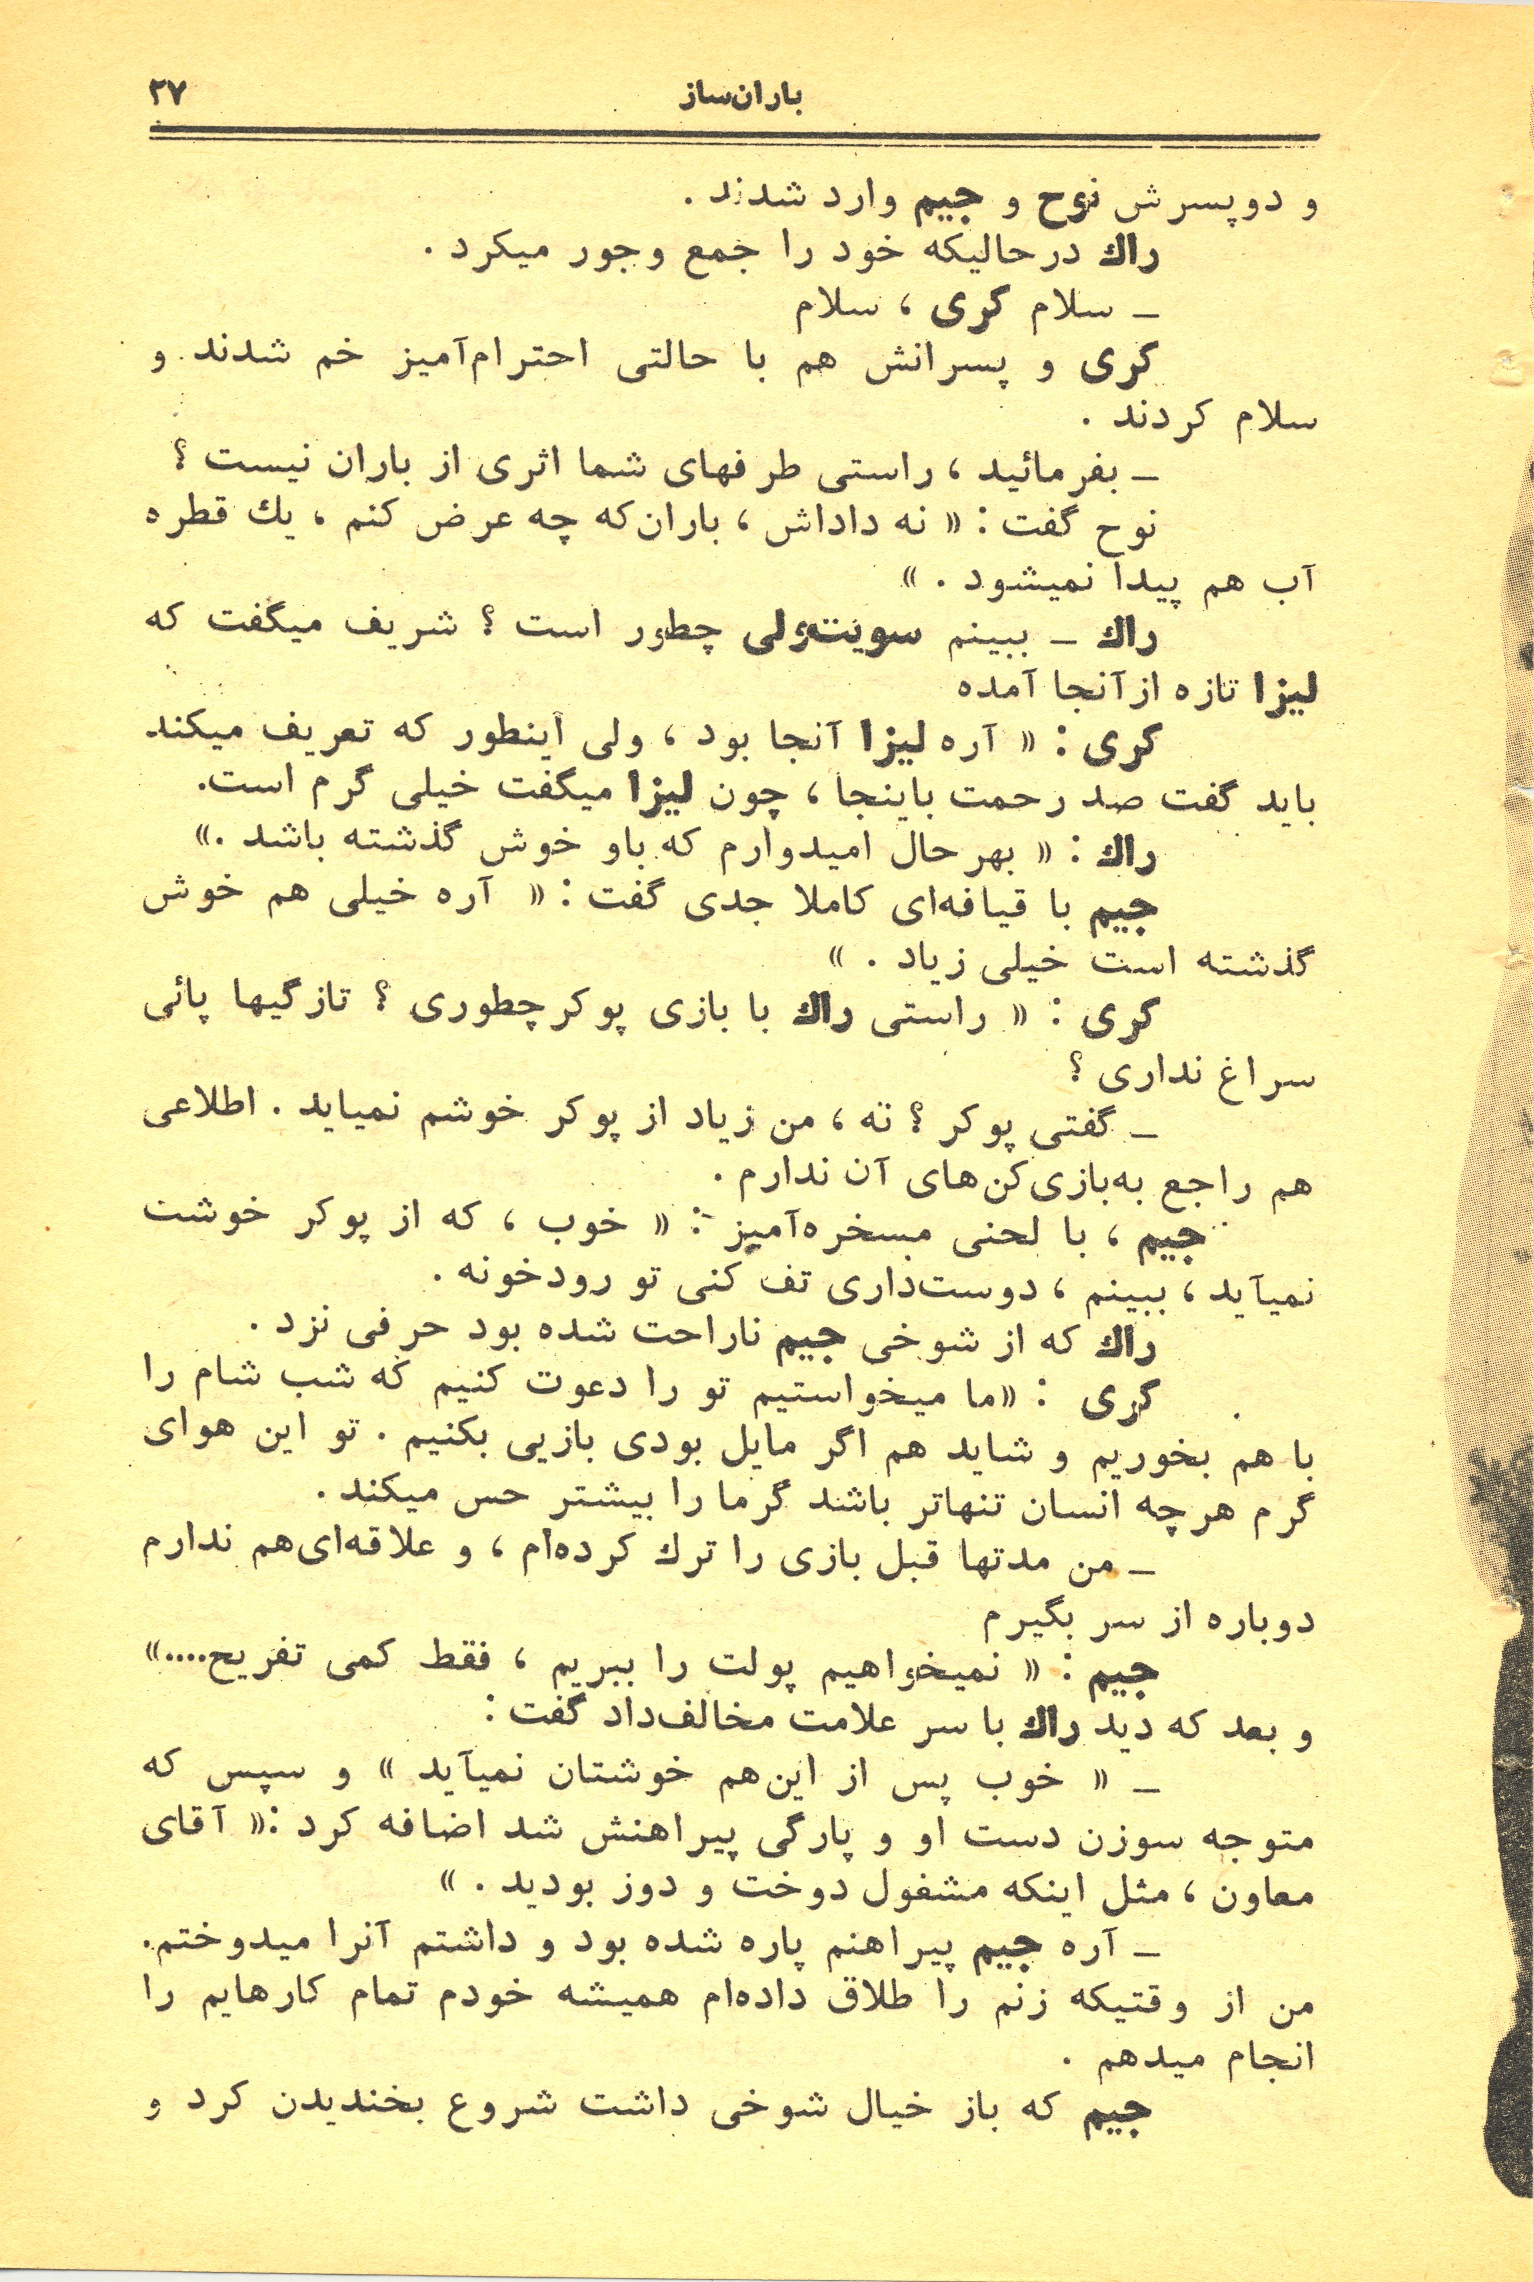 باران‌ساز ۳۷
و دوپسرش نوح و جیم وارد شدند .
راك درحالیکه خود را جمع وجور میکرد .
ـ سلام گری ، سلام
گری و پسرانش هم با حالتی احترام‌آمیز خم شدند و
سلام کردند .
ـ بفرمائید ، راستی طرفهای شما اثری از باران نیست ؟
نوح گفت : « نه داداش ، باران‌که چه عرض کنم ، یك قطره
آب هم پیدا نمیشود . »
راك ـ ببینم سویت‌ولی چطور است ؟ شریف میگفت که
لیزا تازه ازآنجا آمده
گری : « آره لیزا آنجا بود ، ولی اینطور که تعریف میکند
باید گفت صد رحمت باینجا ، چون لیزا میگفت خیلی گرم است.
راك : « بهرحال امیدوارم که باو خوش گذشته باشد .»
جیم با قیافه‌ای کاملا جدی گفت : « آره خیلی هم خوش
گذشته است خیلی زیاد . »
گری : « راستی راك با بازی پوکرچطوری ؟ تازگیها پائی
سراغ نداری ؟
ـ گفتی پوکر ؟ نه ، من زیاد از پوکر خوشم نمیاید . اطلاعی
هم راجع به‌بازی‌کن‌های آن ندارم .
جیم ، با لحنی مسخره‌آمیز : « خوب ، که از پوکر خوشت
نمیآید ، ببینم ، دوست‌داری تف کنی تو رودخونه .
راك که از شوخی جیم ناراحت شده بود حرفی نزد .
گری : «ما میخواستیم تو را دعوت کنیم که شب شام را
با هم بخوریم و شاید هم اگر مایل بودی بازیی بکنیم . تو این هوای
گرم هرچه انسان تنهاتر باشد گرما را بیشتر حس میکند .
ـ من مدتها قبل بازی را ترك کرده‌ام ، و علاقه‌ای‌هم ندارم
دوباره از سر بگیرم
جیم : « نمیخواهیم پولت را ببریم ، فقط کمی تفریح....»
و بعد که دید راك با سر علامت مخالف‌داد گفت :
ـ « خوب پس از این‌هم خوشتان نمیآید » و سپس که
متوجه سوزن دست او و پارگی پیراهنش شد اضافه کرد :« آقای
معاون ، مثل اینکه مشغول دوخت و دوز بودید . »
ـ آره جیم پیراهنم پاره شده بود و داشتم آنرا میدوختم.
من از وقتیکه زنم را طلاق داده‌ام همیشه خودم تمام کارهایم را
انجام میدهم .
جیم که باز خیال شوخی داشت شروع بخندیدن کرد و